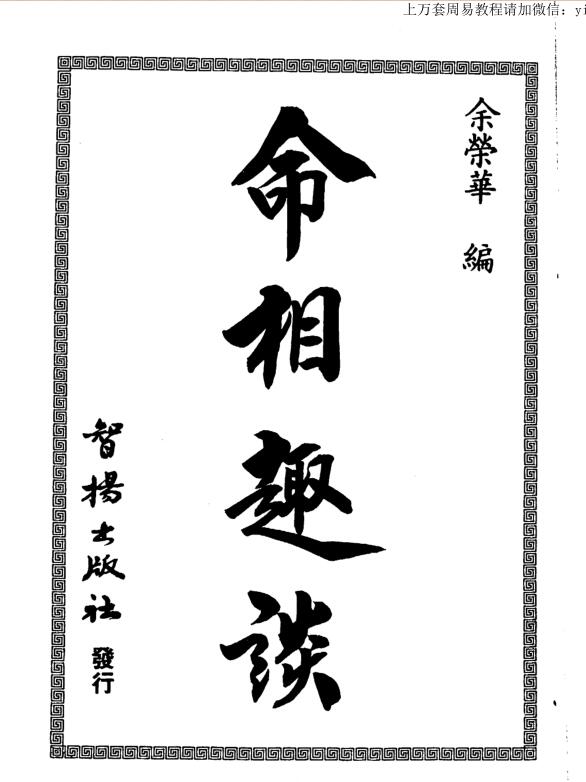 上万套周易教程请加微信：yi
余榮華 編
命相趣談
智揚出版社 發行